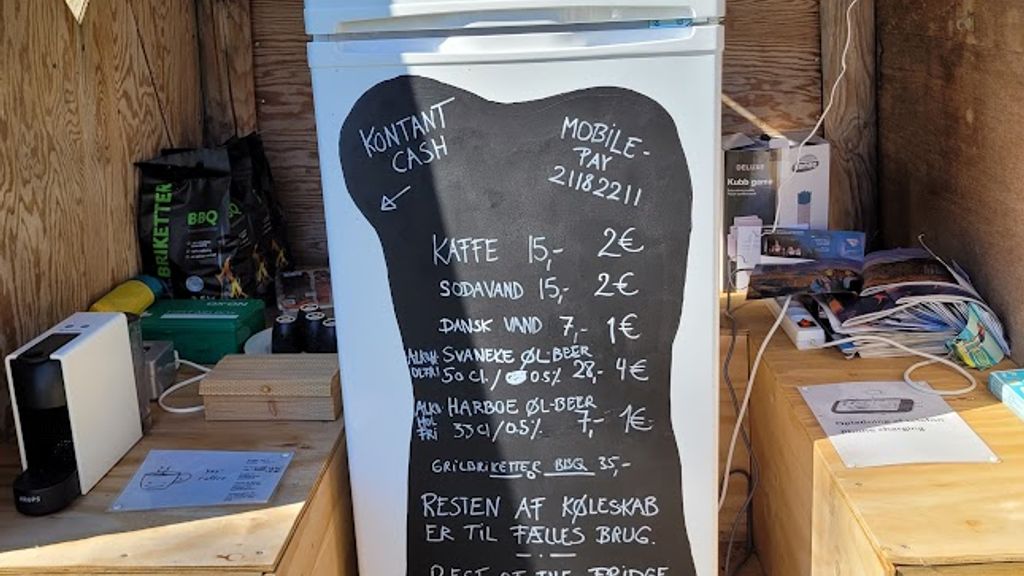 KONTANT
CASH
MOBILE-
PAY
21182211
KAFFE 15,- 2€
SODAVAND 15,- 2€
DANSK VAND 7,- 1€
SVANEKE ØL-BEER
50 CL./ 0.5% 28,- 4€
HARBOE ØL-BEER
33 cl/0.5% 7,- 1€
GRILBRIKETTER BBQ 35,-
RESTEN AF KØLESKAB
ER TIL FÆLLES BRUG.
REST OF THE FRIDGE
BRIKETTER
BBQ
KRUPS
DELUXE
Kubb game
Phone charging